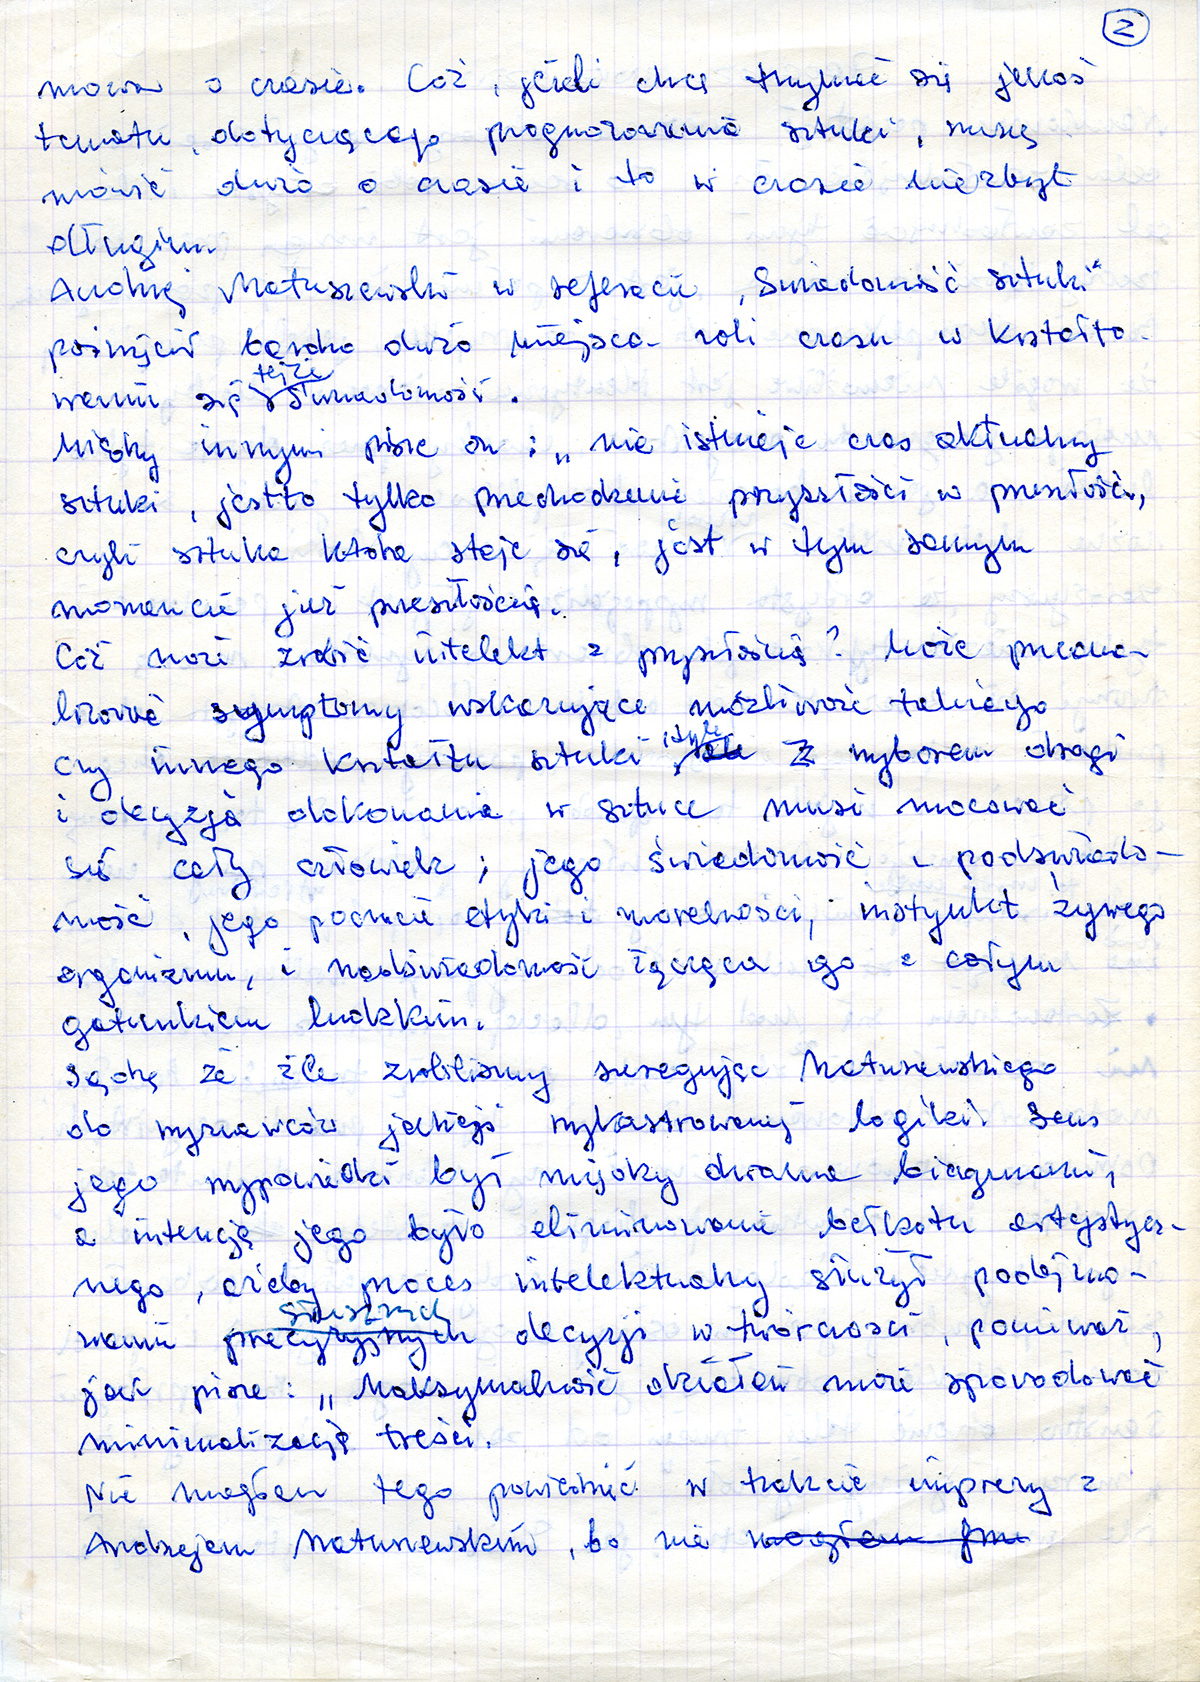 2
mowa o czasie. Cóż, jeśli chcę trzymać się jakoś
tematu, dotyczącego prognozowania sztuki, muszę
mówić dużo o czasie i to w czasie niezbyt
długim.
Andrzej Matuszewski w referacie „Świadomość sztuki"
poświęcił bardzo dużo miejsca roli czasu w kształto-
waniu się tejże świadomości.
Między innymi pisze on: „nie istnieje czas aktualny
sztuki, jest to tylko przechodzenie przyszłości w przeszłość,
czyli sztuka która staje się, jest w tym samym
momencie już przeszłością.
Cóż może zrobić intelekt z przyszłością? Może przeana-
lizować symptomy wskazujące możliwość takiego
czy innego kształtu sztuki, Z wyborem drogi
i decyzją dokonania w sztuce musi mocować
się cały człowiek; jego świadomość i podświado-
mość, jego poczucie etyki i moralności, instynkt żywego
organizmu, i nadświadomość łącząca go z całym
gatunkiem ludzkim.
Sądzę że źle zrobiliśmy szeregując Matuszewskiego
do wyznawców jakiejś wykastrowanej logiki. Sens
jego wypowiedzi był między dwoma biegunami,
a intencją jego było eliminowanie bełkotu artystycz-
nego, ażeby proces intelektualny służył podejmo-
waniu precyzyjnych słusznych decyzji w twórczości, ponieważ,
jak pisze: „Maksymalność działań może spowodować
minimalizację treści.
Nie mogłam tego powiedzieć w trakcie imprezy z
Andrzejem Matuszewskim, bo nie mogłam